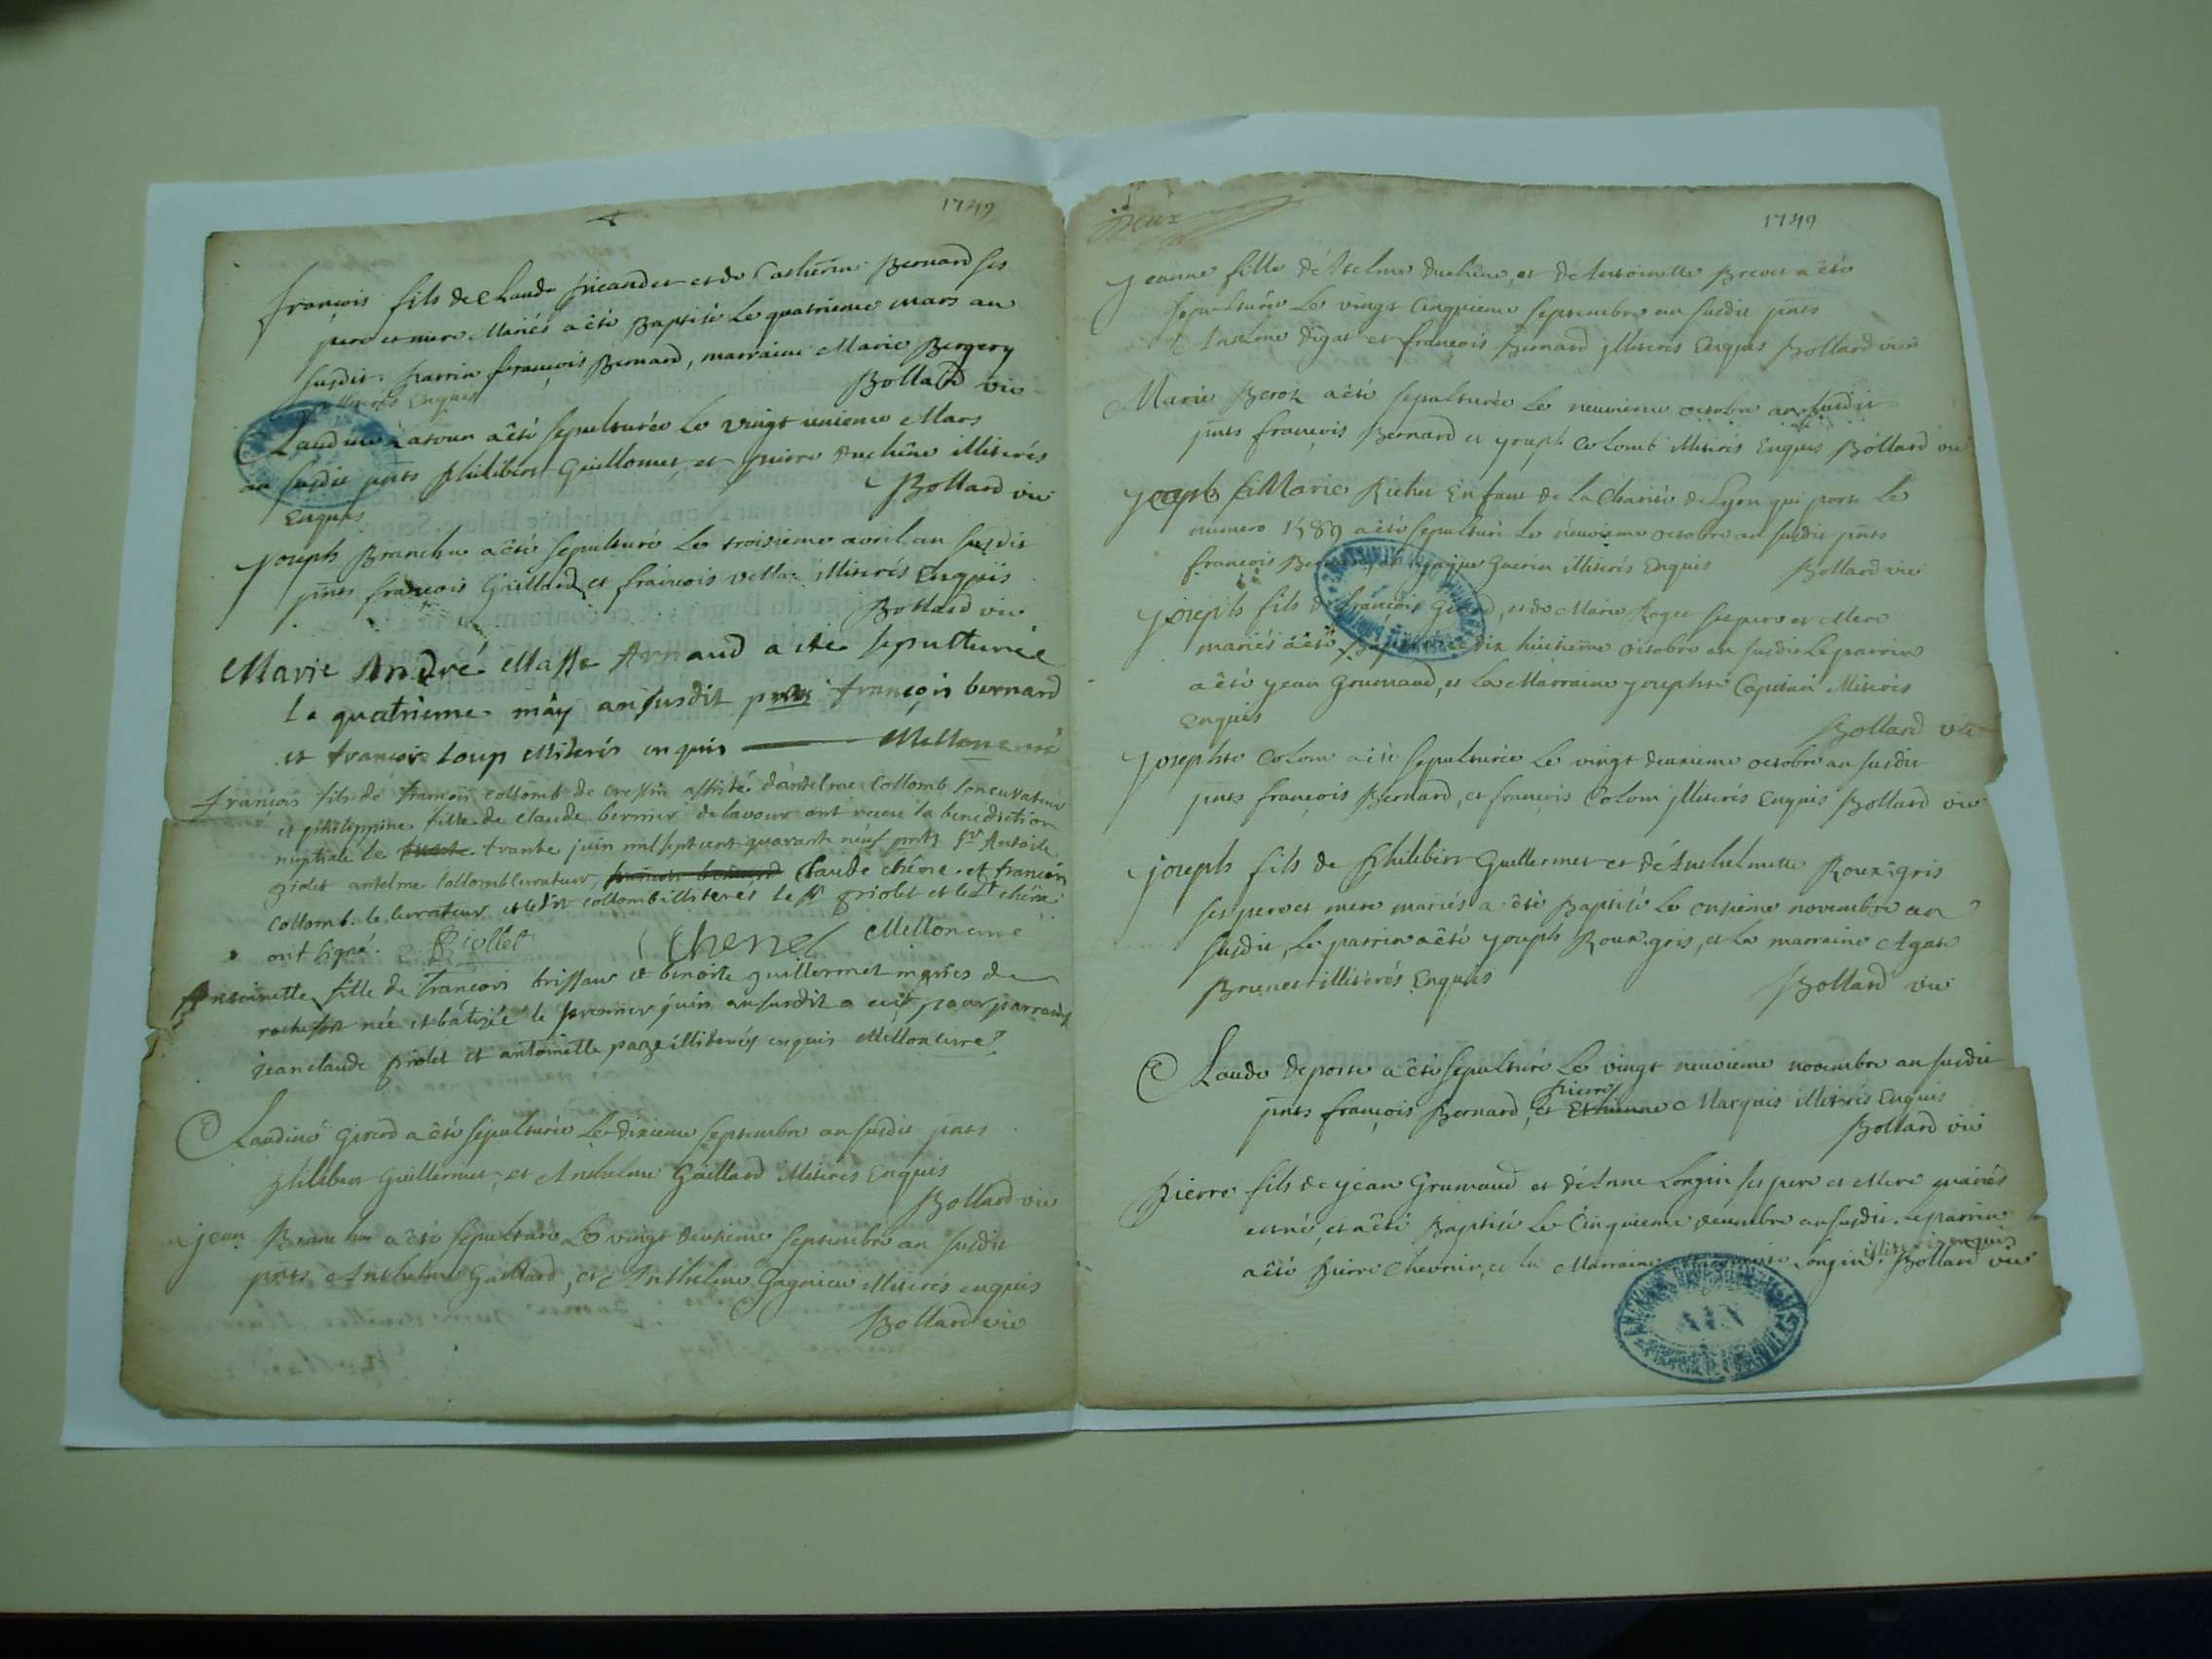 1749
françois fils de Claude et de Catherine Bernard ses
pere et mere Mariés a êté Baptisé Le quatrieme mars an
susdit. parrin françois Bernard, marraine Marie Bergery
illiterés Enquis Bollard vic
Claudine Latour a êté sepulturée Le vingt unieme Mars
an susdit pnts philibert Guillomet, et pierre duchêne illiterés
Enquis Bollard vic
joseph Branchu a êté sepulturé Le troisieme avril an susdit
pnts françois Gaillard et francois vella illiterés Enquis
Bollard vic
Marie André Masse Arnaud a ité sepulturée
le quatrieme may an susdit pnts françois bernard
et francois Loup illiterés enquis
françois fils de francois collomb de cressin assisté d'antelme collomb son curateur
et philippine fille de claude bernier de lavour ont receu la benediction
nuptiale le trante juin mil sept cent quarante neuf pnts Sr Antoine
griolet antelme collomb curateur, claude chêne et francois
collomb. le curateur et ledit collomb illiterés le sr griolet et led chêne
ont signé. Griollet Chenel
Antoinette fille de francois trissaur et benoite guillermet mariés de
rochefort née et batizée le premier juin an susdit a eut pour parrain
jean claude griolet et antoinette paze illiterés enquis
Claudine Girod a êté sepulturée Le dixieme septembre an susdit pnts
philibert Guillermet, et Anthelme Gaillard illiterés Enquis
Bollard vic
jean Branchu a êté sepulturé Le vingt deuxieme septembre an susdit
pnts Anthelme Gaillard, et Anthelme Gagnieu illiterés enquis
Bollard vic
Deux
1749
Jeanne fille d'Anthelme duchêne, et d'Antoinette Brevet a êté
sepulturée Le vingt Cinquieme septembre an susdit pnts
Anthelme digat et françois Bernard illiterés Enquis Bollard vic
Marie Beroz a êté sepulturée Le neuvieme octobre an susdit
pnts françois Bernard et joseph Colomb illiterés Enquis Bollard vic
Joseph Marie Richet Enfant de la Charité de Lyon qui porte Le
numero 1589 a êté sepulturé Le neuvieme octobre an susdit pnts
françois Guerin illiterés Enquis Bollard vic
joseph fils de françois Girod, et de Marie Roget ses pere et Mere
mariés a êté Baptisé Le dix huitieme octobre an susdit Le parrin
a êté jean Grumaud, et La Marraine josephte Capitan illiterés
Enquis
Bollard vic
josephte Colom a êté sepulturée Le vingt deuxieme octobre an susdit
pnts françois Bernard, et françois Colom illiterés Enquis Bollard vic
joseph fils de philibert Guillermet et d'Anthelmette Roux-gris
ses pere et mere mariés a êté Baptisé Le onzieme novembre an
susdit, Le parrin a êté joseph Roux-gris, et La marraine Agate
Brunet illiterés Enquis
Bollard vic
Claude deporte a êté sepulturé Le vingt neuvieme novembre an susdit
pierre
pnts françois Bernard, et Etienne Marquis illiterés Enquis
Bollard vic
pierre fils de jean Grumaud et d'Anne Longin ses pere et Mere mariés
est né et a êté Baptisé Le Cinquieme décembre an susdit. Le parrin
a êté pierre Chevrier, et La Marraine Longin. illiterés enquis Bollard vic
AIN